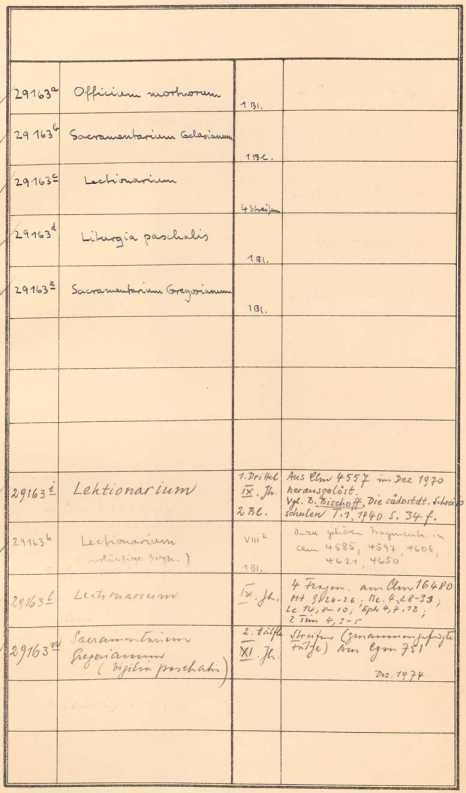 29163a Officium mortuorum 1 Bl.
29163b Sacramentarium Gelasianum 1 Bl.
29163c Lectionarium 4 Streifen
29163d Liturgia paschalis 1 Bl.
29163e Sacramentarium Gregorianum 1 Bl.
29163i Lektionarium 1. Drittel IX. Jh. 2 Bl.
Aus Clm 4557 im Dez 1970
herausgelöst.
Vgl. B. Bischoff, Die südostdt. Schreib
schulen T. 1, 1940 S. 34 f.
29163k Lectionarium VIII 1 Bl.
Dazu gehören Fragmente in
Clm 4585, 4597, 4606,
4621, 4650
29163l Lectionarium IX. Jh.
4 Fragm. aus Clm 16480
29163m Sacramentarium
Gregorianum
(Vigilia paschalis)
2. Hälfte
XI. Jh.
Streifen (zusammengefügte
) Aus Cgm 751
Dez. 1974